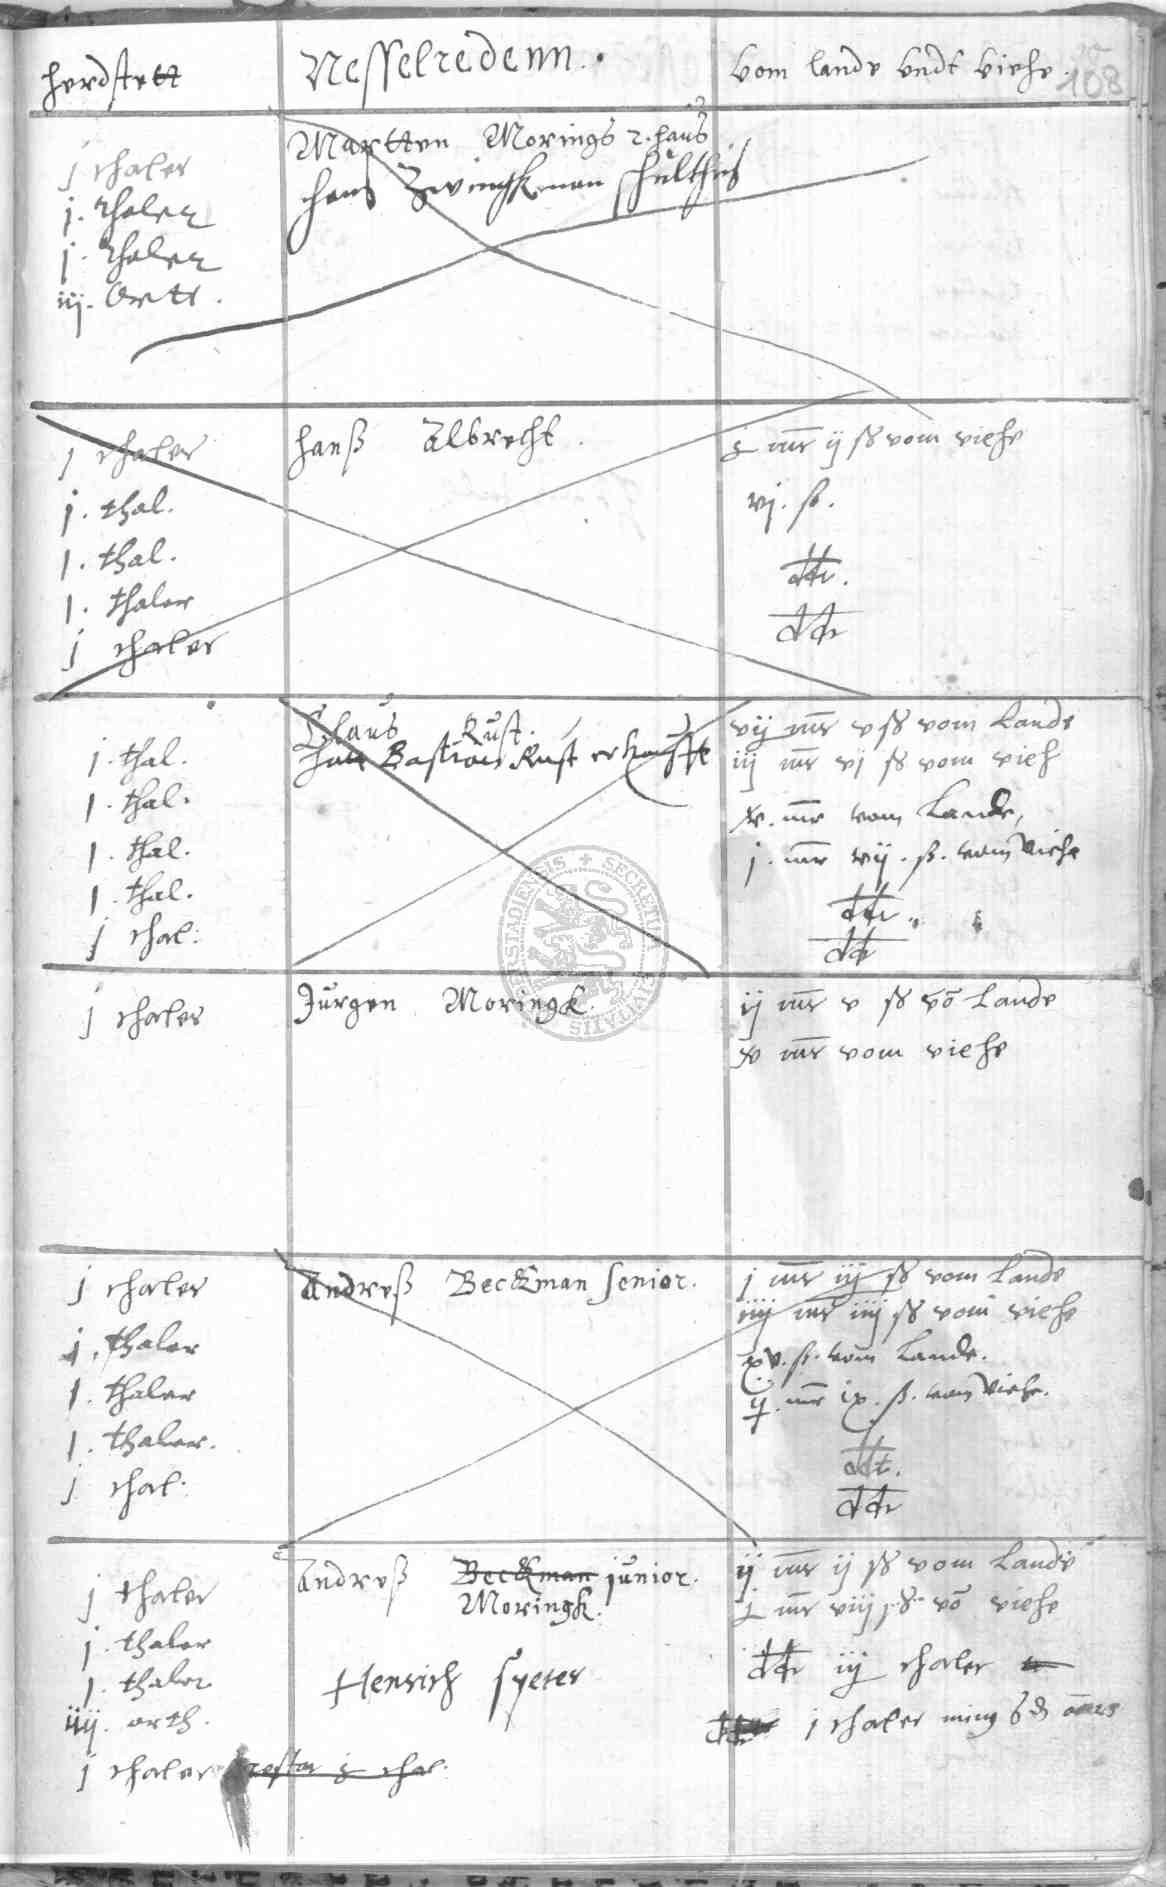 herdstett
Nesselredenn.
vom lande vndt viehe
108
j thaler
j. thaler
j. thaler
iij. Ortt.
Martten Morings 2. haus
hans Zwingkman schulthis
j thaler
j. thal.
j. thal.
j. thaler
j thaler
hanß Albrecht.
mr ij ß vom viehe
vj. ß.
dt.
dt
j. thal.
j. thal.
j. thal.
j. thal.
j thal:
Claus Rust.
hatt Bastian Rust erkaufft
vij mr v ß vom Lande
iij mr vj ß vom vieh
mr vom Lande,
j. mr vij. ß. vom Viehe
dt
dt
j thaler
Jurgen Moringk.
ij mr v ß vō Lande
mr vom viehe
j thaler
j. thaler
j. thaler
j. thaler.
j thal:
Andreß Beckman senior.
j mr iij ß vom Lande
iiij mr iiij ß vom viehe
xv. ß. vom Lande.
mr ix. ß. vom Viehe.
dt.
dt
j thaler
j. thaler
j. thaler
iij. orth.
j thaler restat thal:
Andreß Beckman junior.
Moringk.
Henrich Speter
ij mr ij ß vom Lande
mr viij ß vō viehe
dt iij thaler
j thaler
SECRETUM CIVITATIS